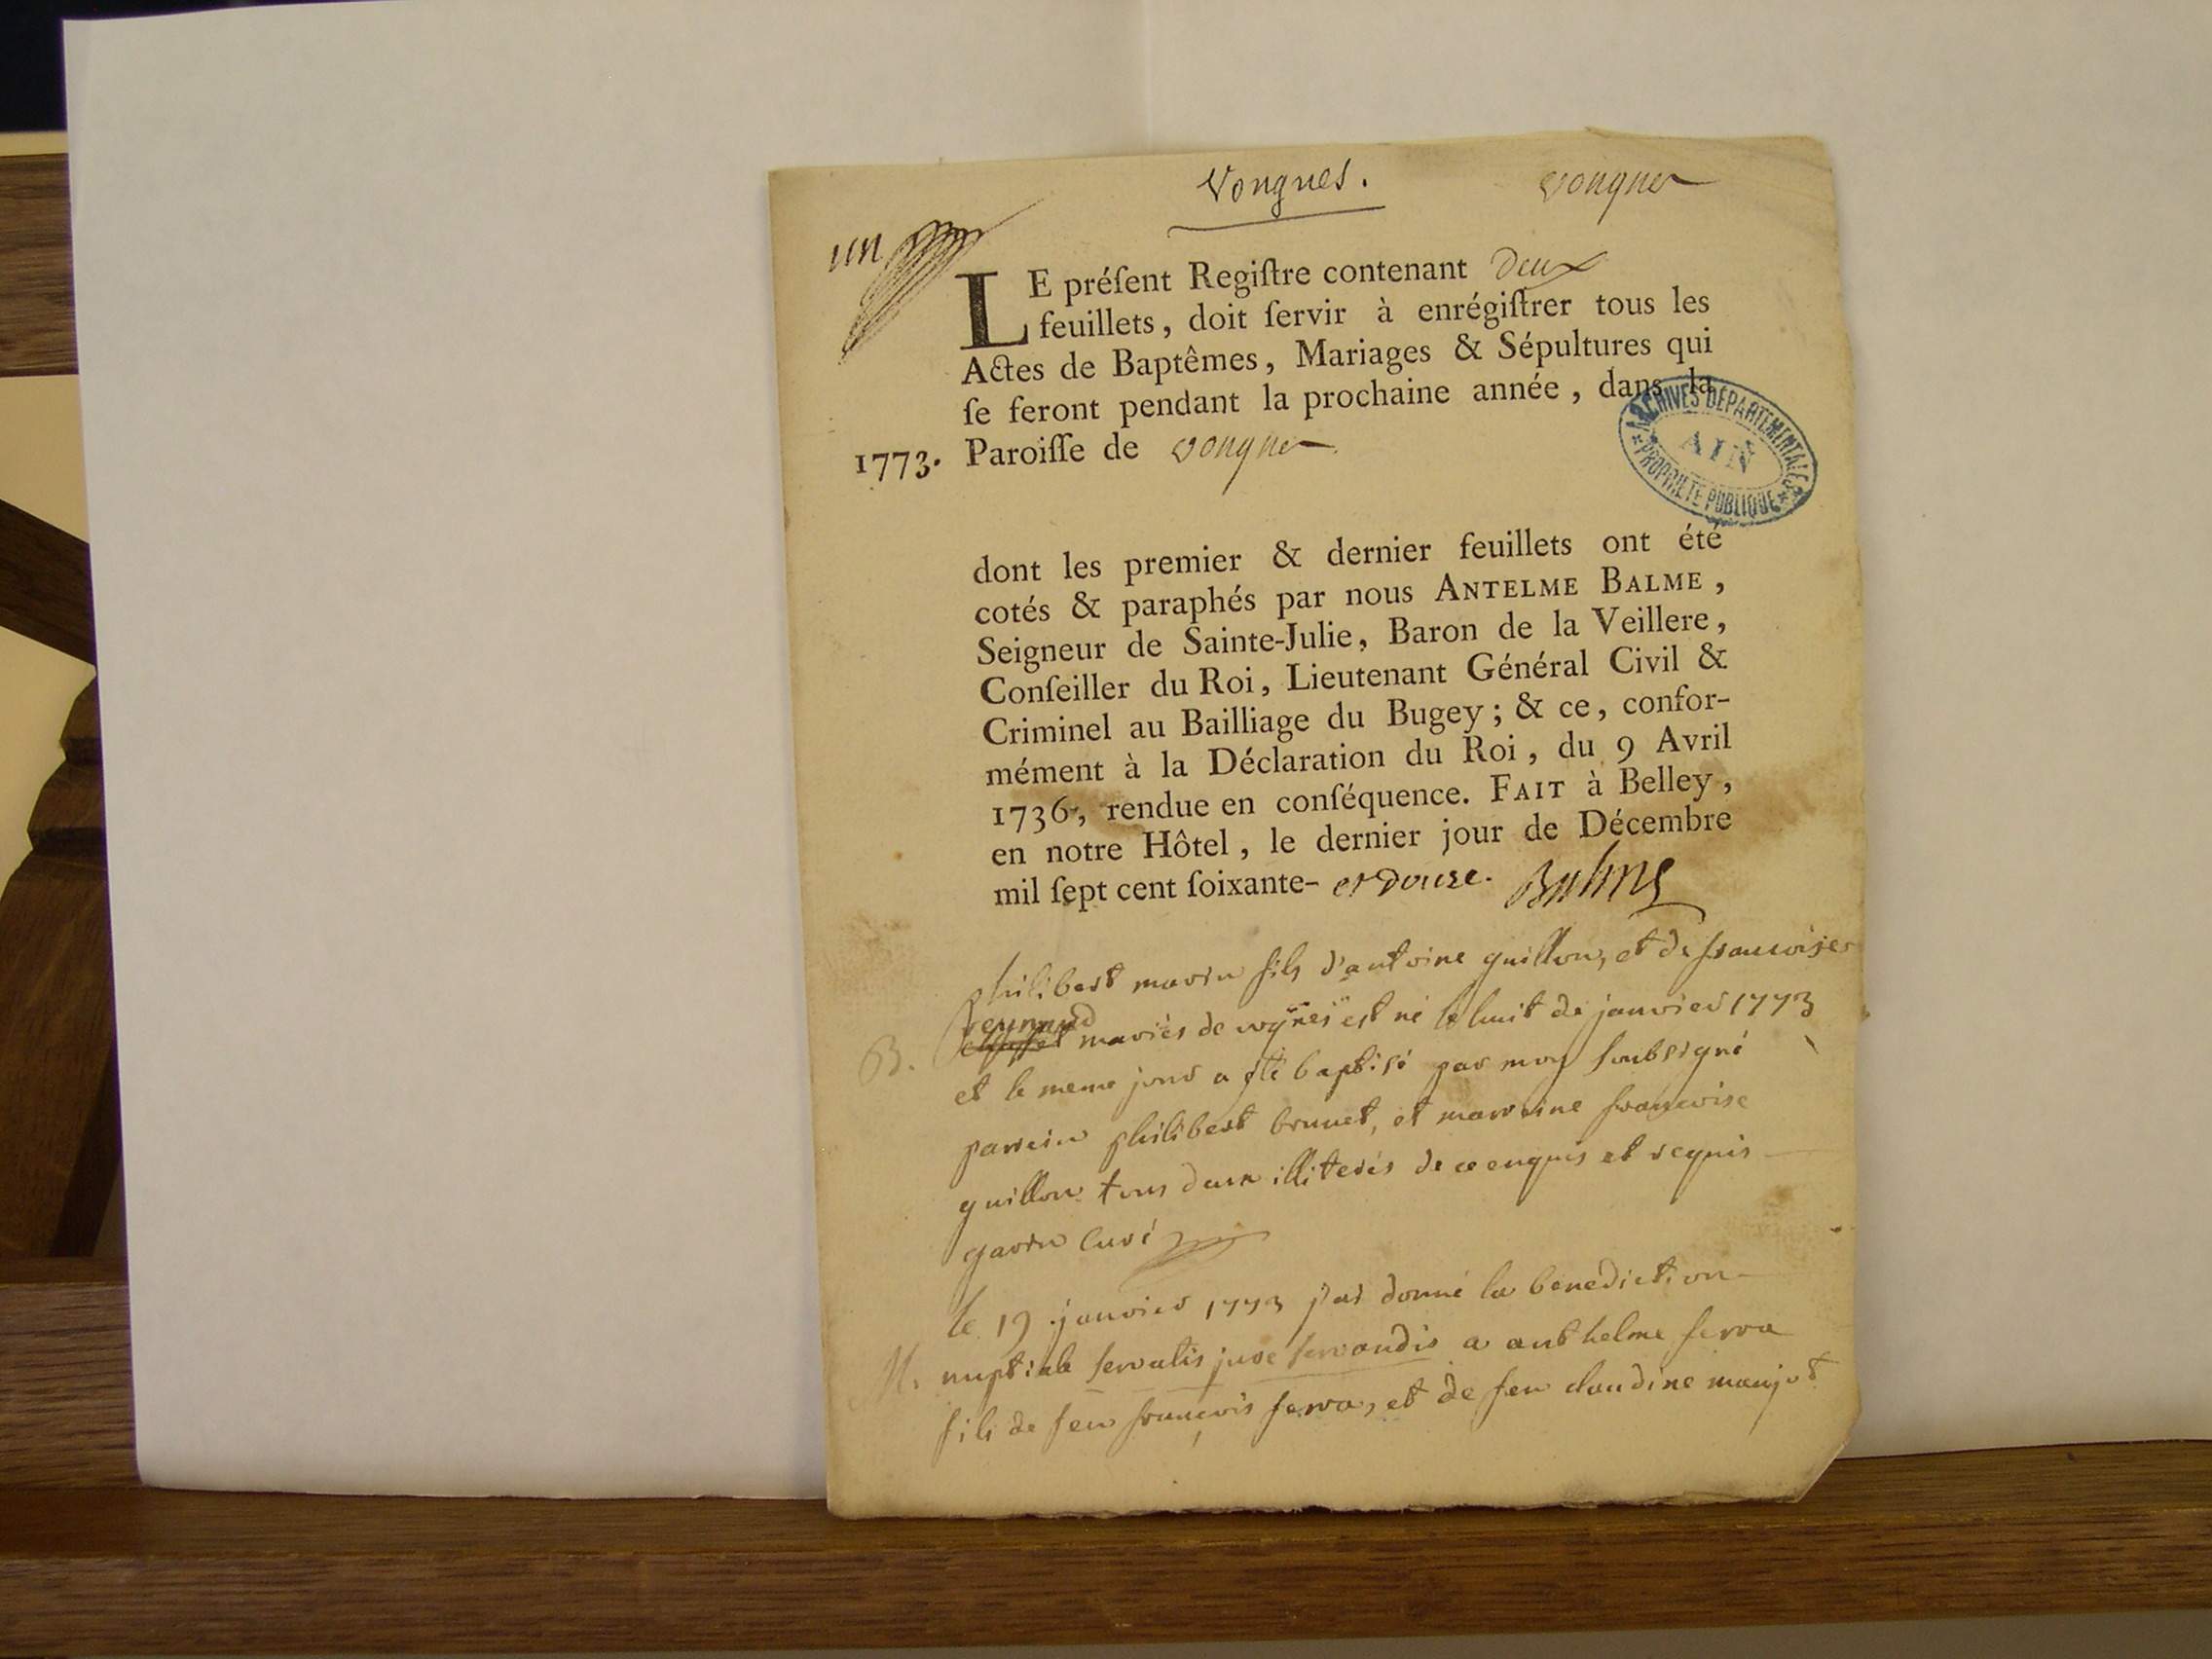 Vongnes.
vongnes
un
LE préſent Regiſtre contenant deux
feuillets, doit ſervir à enrégiſtrer tous les
Actes de Baptêmes, Mariages & Sépultures qui
ſe feront pendant la prochaine année, dans la
1773. Paroiſſe de vongnes
ARCHIVES DÉPARTEMENTALES
AIN
PROPRIÉTÉ PUBLIQUE
dont les premier & dernier feuillets ont été
cotés & paraphés par nous ANTELME BALME,
Seigneur de Sainte-Julie, Baron de la Veillere,
Conſeiller du Roi, Lieutenant Général Civil &
Criminel au Bailliage du Bugey; & ce, confor-
mément à la Déclaration du Roi, du 9 Avril
1736, rendue en conſéquence. FAIT à Belley,
en notre Hôtel, le dernier jour de Décembre
mil ſept cent ſoixante- et douze. Balme
philibert marin fils d'antoine guillon, et de francoise
reynaud
B. mariés de est né le huit de janvier 1773
et le meme jour a été baptisé par moy soubsigné
parrein philibert brunet, et marreine francoise
guillon tous deux illiterés de ce enquis et requis
gavin curé
le 19 janvier 1773 j'ai donné la benediction
M. nuptiale servatis jure servandis a anthelme serra
fils de feu francois serra, et de feu claudine manjot